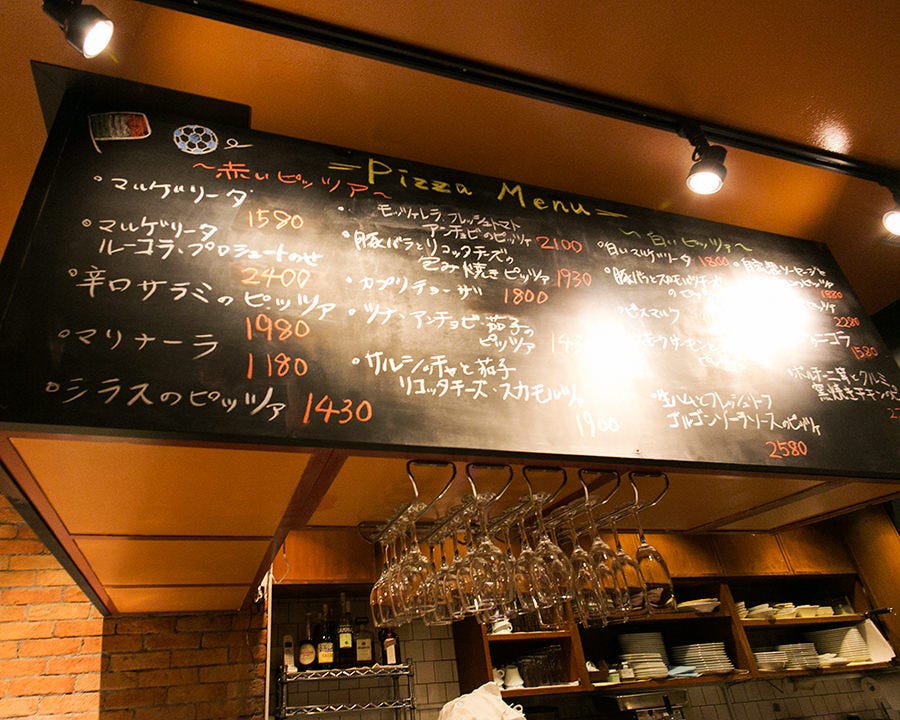 =Pizza Menu=
~赤いピッツァ~
°マルゲリータ
1580
°マルゲリータ
ルーコラ・プロシュートのせ
2400
°辛口サラミのピッツァ
1980
°マリナーラ
1180
°シラスのピッツァ 1430
モッツァレラ、フレッシュトマト
アンチョビのピッツァ 2100
°豚バラとリコッタチーズの
包み焼きピッツァ 1930
°カプリチョーザ
1800
°ツナ・アンチョビ・茄子の
ピッツァ
°サルシッチャと茄子
リコッタチーズ・スカモルツァ
1900
~白いピッツァ~
°白いマルゲリータ 1800
°豚バラとスカモルツァチーズ
のピッツァ
°ビスマルク
°生ハムとフレッシュリーフ
ゴルゴンゾーラソースのピッツァ
2580
1880
2280
1580